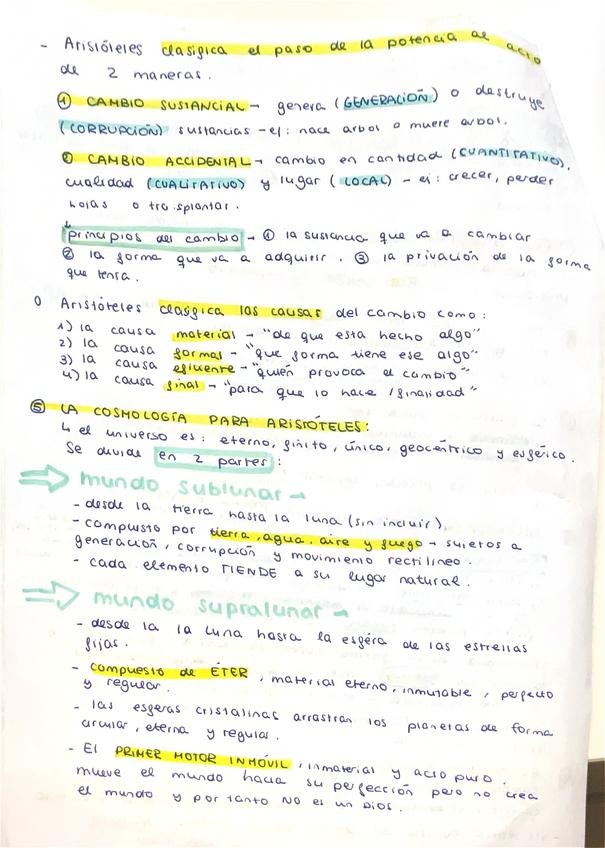 - Aristóteles clasifica el paso de la potencia al acto
de 2 maneras.
① CAMBIO SUSTANCIAL → genera (GENERACIÓN) o destruye
(CORRUPCIÓN) sustancias - ej: nace arbol o muere arbol.
② CAMBIO ACCIDENTAL → cambio en cantidad (CUANTITATIVO),
cualidad (CUALITATIVO) y lugar (LOCAL) - ej: crecer, perder
hojas o trasplantar.
↳ principios del cambio → ① la sustancia que va a cambiar
② la forma que va a adquirir. ③ la privación de la forma
que tenía.
O Aristóteles clasifica las causas del cambio como:
1) la causa material → "de que esta hecho algo"
2) la causa formal → "que forma tiene ese algo"
3) la causa efiviente → "quién provoca el cambio"
4) la causa final → "para que lo hace / finalidad"
⑤ LA COSMOLOGÍA PARA ARISTÓTELES:
↳ el universo es: eterno, finito, único, geocéntrico y esférico.
Se divide en 2 partes:
⇒ mundo sublunar →
- desde la tierra hasta la luna (sin incluir).
- compuesto por tierra, agua, aire y fuego → sujetos a
generación, corrupción y movimiento rectilineo.
- cada elemento TIENDE a su lugar natural.
⇒ mundo supralunar →
- desde la la luna hasta la esféra de las estrellas
fijas.
- compuesto de ÉTER, material eterno, inmutable, perfecto
y regular.
- las esferas cristalinas arrastran los planetas de forma
circular, eterna y regular.
- El PRIMER MOTOR INMÓVIL, inmaterial y acto puro.
mueve el mundo hacia su perfección pero no crea
el mundo y por tanto NO es un Dios.